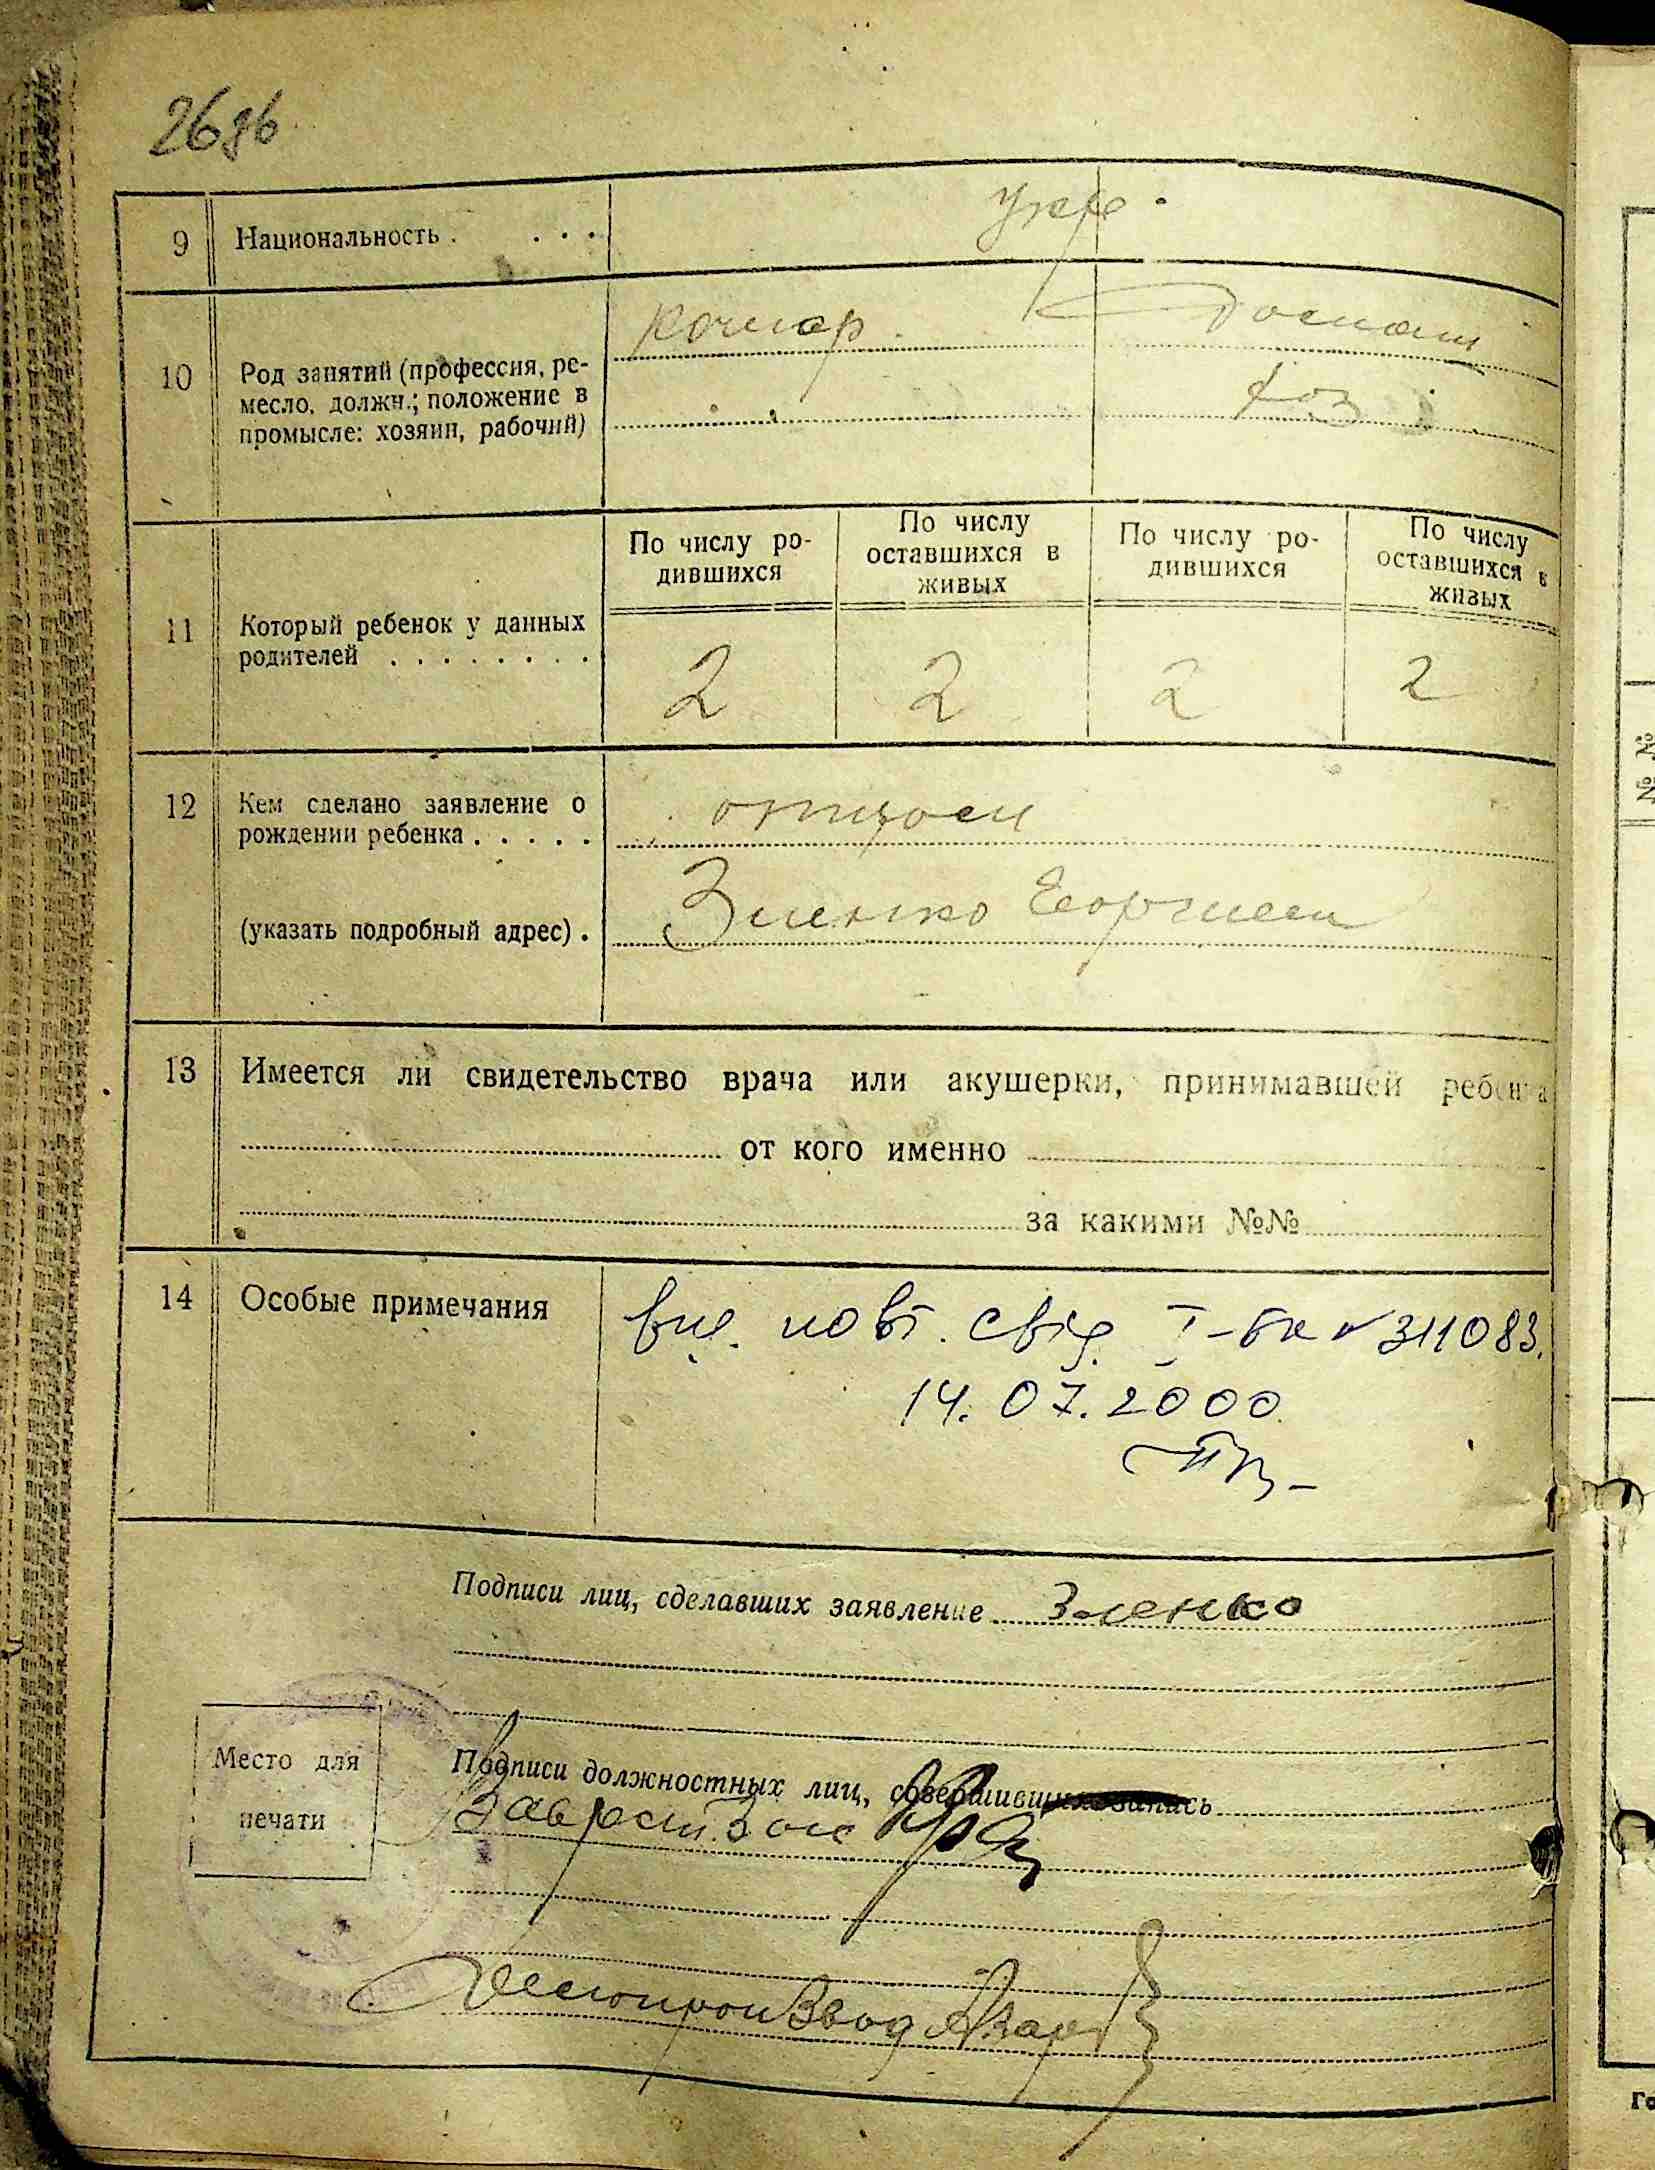 26зв
9 Национальность . . . . укр.
10 Род занятий (профессия, ре-
месло, должн.; положение в
промысле: хозяин, рабочий)
кочегар
Домаш
хоз
11 Который ребенок у данных
родителей . . . . . . . .
По числу ро-
дившихся
По числу
оставшихся в
живых
По числу ро-
дившихся
По числу
оставшихся в
живых
2 2 2 2
12 Кем сделано заявление о
рождении ребенка . . . . .
(указать подробный адрес) .
отцом
Зленко Георгием
13 Имеется ли свидетельство врача или акушерки, принимавшей ребенка
от кого именно
за какими №№
14 Особые примечания
вид. повт. свід. I-БК № 311083.
14.07.2000
Подписи лиц, сделавших заявление Зленко
Место для
печати
Подписи должностных лиц, совершивших запись
Делопроизвод
№ №
Го